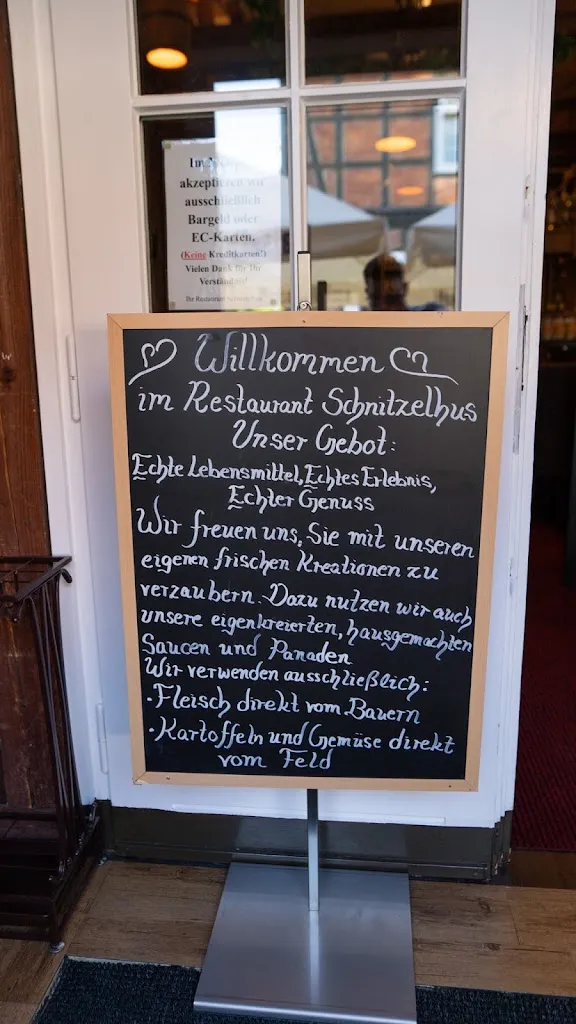 akzeptieren wir
ausschließlich
Bargeld oder
EC-Karten.
(Keine Kreditkarten!)
Vielen Dank für Ihr
Verständnis!
Ihr Restaurant
Willkommen
im Restaurant Schnitzelhus
Unser Gebot:
Echte Lebensmittel, Echtes Erlebnis,
Echter Genuss
Wir freuen uns, Sie mit unseren
eigenen frischen Kreationen zu
verzaubern. Dazu nutzen wir auch
unsere eigenkreierten, hausgemachten
Saucen und Panaden
Wir verwenden ausschließlich:
·Fleisch direkt vom Bauern
·Kartoffeln und Gemüse direkt
vom Feld